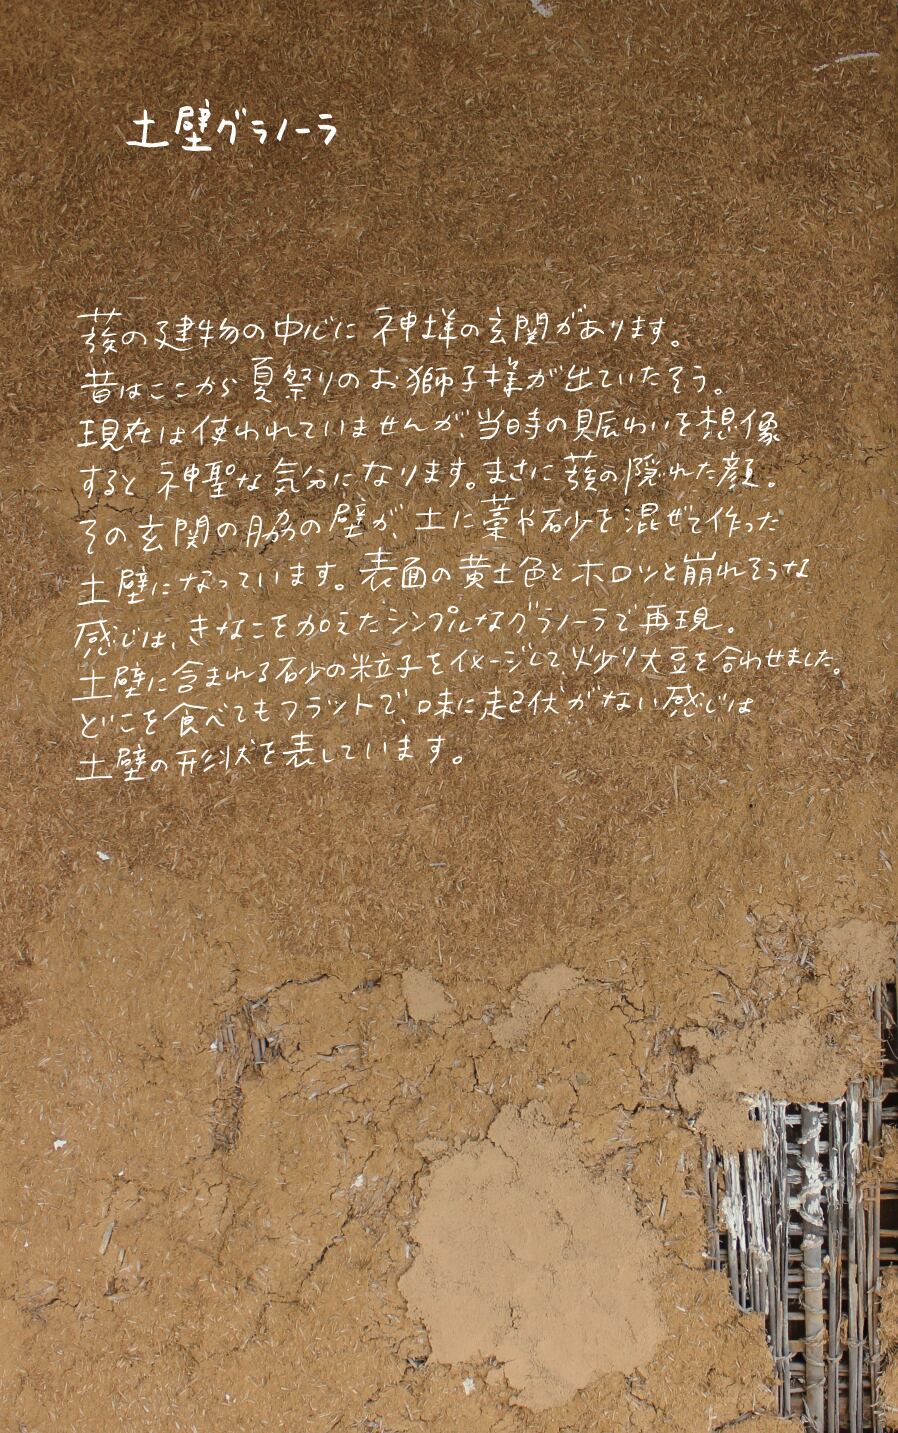 土壁グラノーラ
菱の建物の中心に神様の玄関があります。
昔はここから夏祭りのお獅子様が出ていたそう。
現在は使われていませんが、当時の賑わいを想像
すると神聖な気分になります。まさに菱の隠れた顔。
その玄関の脇の壁が、土に藁や砂を混ぜて作った
土壁になっています。表面の黄土色とホロッと崩れそうな
感じは、きなこを加えたシンプルなグラノーラで再現。
土壁に含まれる砂の粒子をイメージして炒り大豆を合わせました。
どこを食べてもフラットで、味に起伏がない感じは
土壁の形状を表しています。